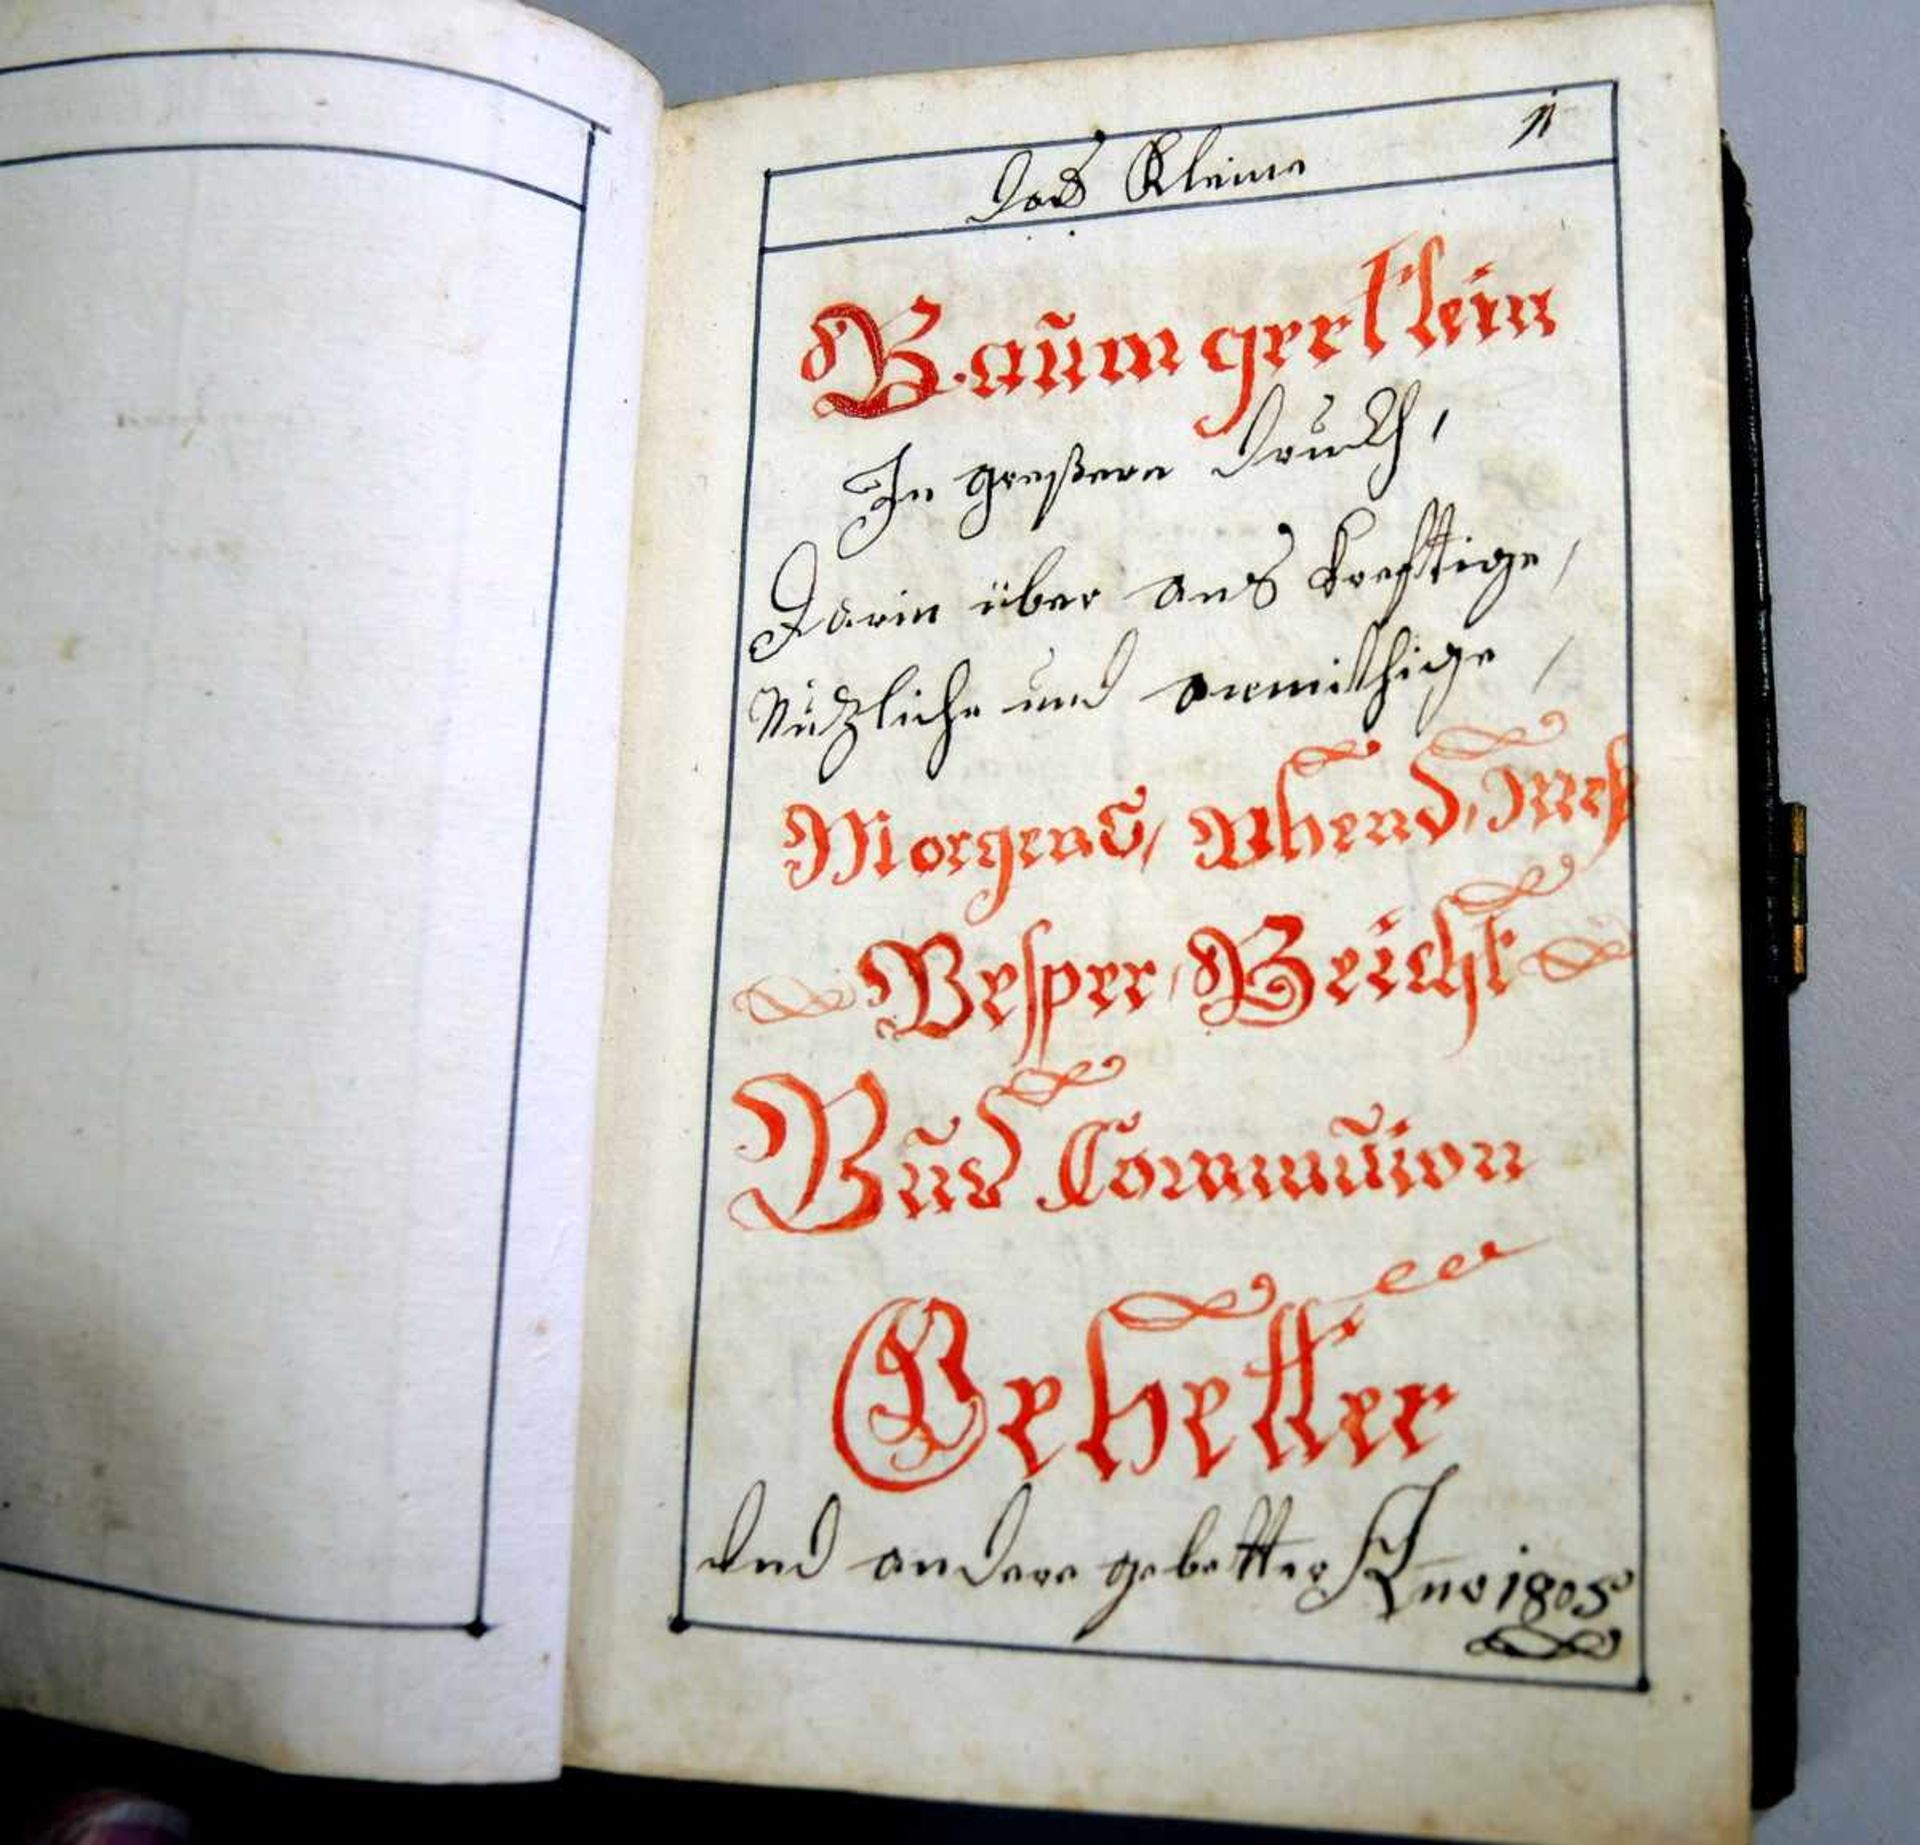 Das Kleine 1
Baumgertlein
In greßern Druckh,
Darin über aus kreftige,
Nützliche und anmithige,
Morgens, Abend, Mess
Vesper, Beicht
Bus Communion
Gebetter
und andere gebetter Ano 1805